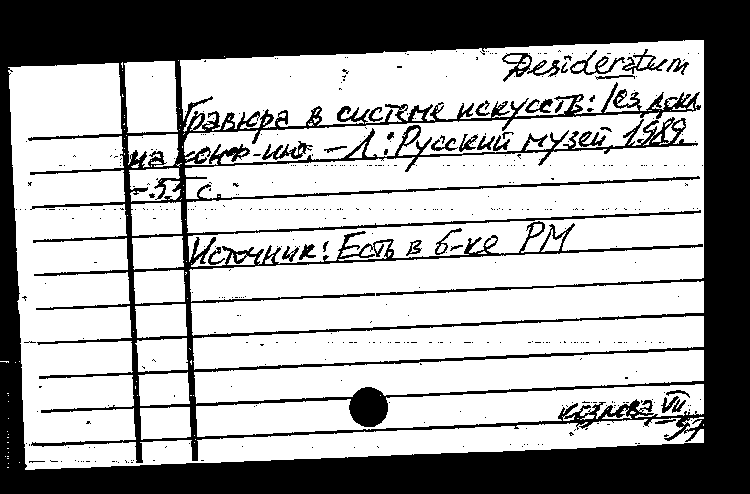 Desideratum
Гравюра в системе искусств: Тез. докл.
на конф-ию. – Л.: Русский музей, 1989.
– 53 с.
Источник: Есть в б-ке РМ
VII